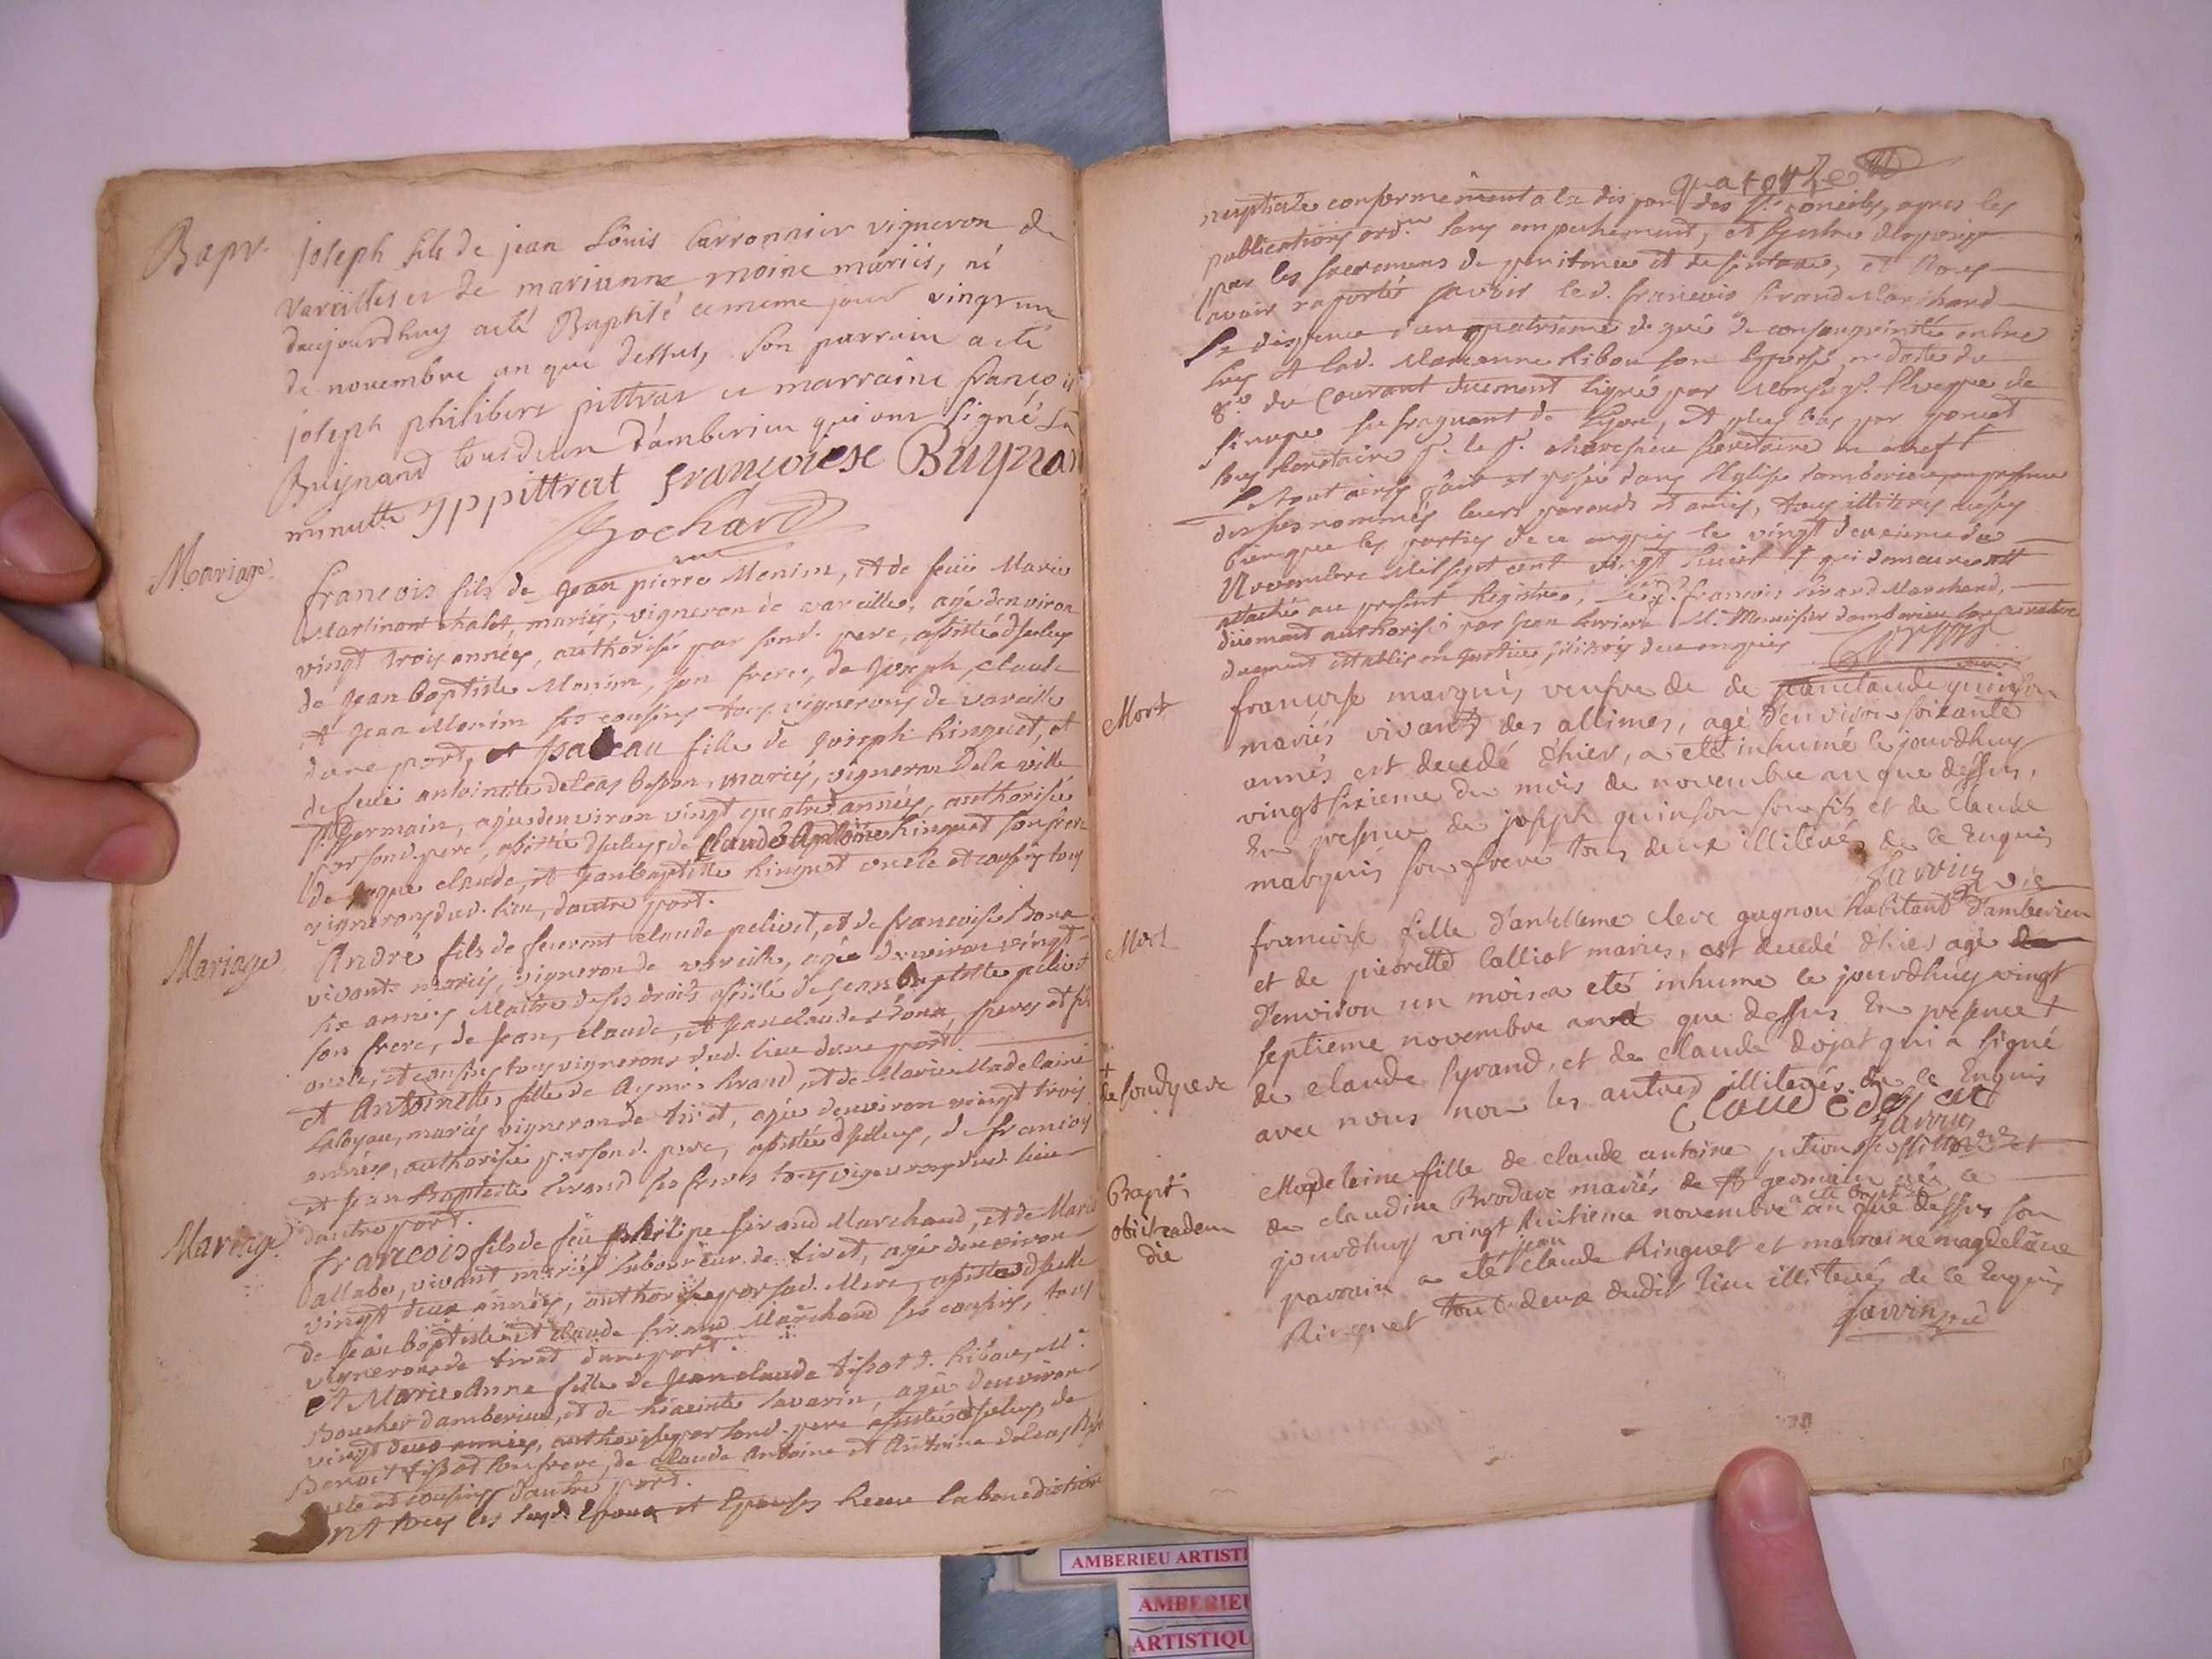 Bapt.
joseph fils de jean Louis Carronnier vigneron de
Vareilles et de marianne moine mariés, né
daujourdhuy a été Baptisé ce meme jour vingt un
de novembre an que dessus, Son parrain a été
joseph philibert pittrat et marraine francois
Buynand tous deux d'amberieu qui ont signé La
minutte jppittrat francoiese Buynan
Mariage
francois fils de Jean pierre Monim, et de feüe Marie
Martinant chalot, mariés, vigneron de vareille, agé denviron
vingt trois années, authorisé par sond. pere, assisté d'seluy
de Jean baptiste Monim, son frere, de Joseph, claude
et Jean Monim ses cousins tous vignerons de vareille
dune part, et fille de Joseph Ringuet, et
de feüe antoinette deleas bosson, mariés, vigneron de la ville
St Germain, agée denviron vingt quatre années, authorisée
par sond. pere, assistée d'seluy, de Claude Antoine Ringuet son frere
de claude, et Jean baptiste Ringuet oncle et cousins tous
vignerons dud. lieu, dautre part.
Mariage
André fils de feu claude pelivet, et de francoise Bona
vivants mariés, vigneron de vareille, agé denviron vingt
six années Maitre de ses droits assisté de Jean baptiste pelivet
son frere, de Jean, claude, et Jean claude Bona, peres et fils
oncle, et cousins tous vignerons dud. lieu dune part
et Antoinette fille de Aymé Sirand, et de Marie Madelaine
mariés vigneron de tiret, agée denviron vingt trois
années, authorisée par sond. pere, assistée d'seluy, de francois
et Jean Baptiste Sirand ses freres tous vignerons dud. lieu
dautre part.
Mariage
francois fils de feu philipe Sirand Marchand, et de Marie
vivant mariés laboureur de tiret, agé denviron
vingt deux années, authorisé par sad. Mere, assisté d'selle
de Jean baptiste et claude Sirand Marchand ses cousins, tous
vignerons de tiret dune part.
et Marie Anne fille de Jean claude tissot d. Ribou, Me
Boucher damberieu, et de hiacinte Savarin, agée denviron
vingt deux années, authorisée par sond. pere assistée d'seluy, de
Benoit tissot son frere, de claude Antoine et Antoine deleas
oncle et cousins dautre part.
Ont tous les susd. Epoux et Epouses Receu la benediction
quatorze
nuptiale conformement a la des Sts conciles, apres les
publications ordres sans empechement, et
par les sacremens de penitence et de et Nous
avoir raporté savoir led. francois Sirand Marchand
La dispence d'un quatrieme degré de consanguinité entre
luy et lad. Marianne Ribou son Epouse, en datte du
8e du Courant duement signé par Monsigr. Eveque de
sinope sufragant de Lyon, et plus bas par
secretaire
Le tout ainsy fait et passé dans l'Eglise damberieu, en presence
des susnommés leurs parents et amis, tous illiterés
bien que les parties de ce enquis le vingt deuxieme de
Novembre Mil sept cent vingt huict qui demeurent
attaché au present Registre, led. francois Sirand Marchand,
duement authorisé par Jean
duement etablis en Justice de ce enquis
Mort
francoise marquis veufve de de jean claude quinson
mariés vivants des allimes, agé d'environ soixante
annés est decedé d'hier, a eté inhumé ce jourdhuy
vingt sixieme du mois de novembre an que dessus,
En presence de joseph quinson son fils et de claude
marquis son frere tous deux illiterés de ce Enquis
Sarvin vic
Mort
francoise fille d'antelleme clerc gagnon habitant d'amberieu
et de pierrette Calliot mariés, est decedé d'hier agé
d'environ un mois a eté inhumé ce jourdhuy vingt
septieme novembre an que dessus En presence
+ de soudyere
de claude Syrand, et de claude dojat qui a signé
avec nous non les autres illiterés de ce Enquis
Claude dojat
Sarvin
Bapt.
obiit eadem
die
Madeleine fille de claude antoine et
de claudine Brodare mariés de st germain née ce
jourdhuy vingt huitieme novembre a eté Baptisé an que dessus son
parrain a eté jean claude Ringuet et marraine magdelaine
Ringuet tout deux dudit lieu illiterés de ce Enquis
Sarvin vic
AMBERIEU ARTISTI
AMBERIEU
ARTISTIQU